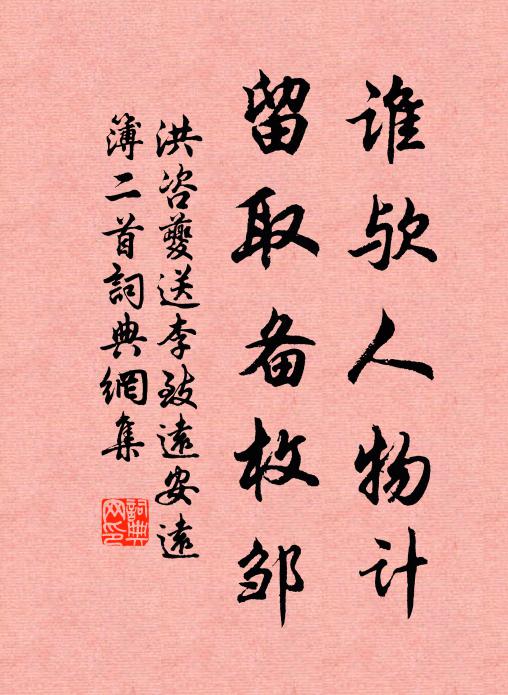 谁欤人物计
留取备枚邹
洪咨夔送李致远安远
簿二首词典網集
詞典网印